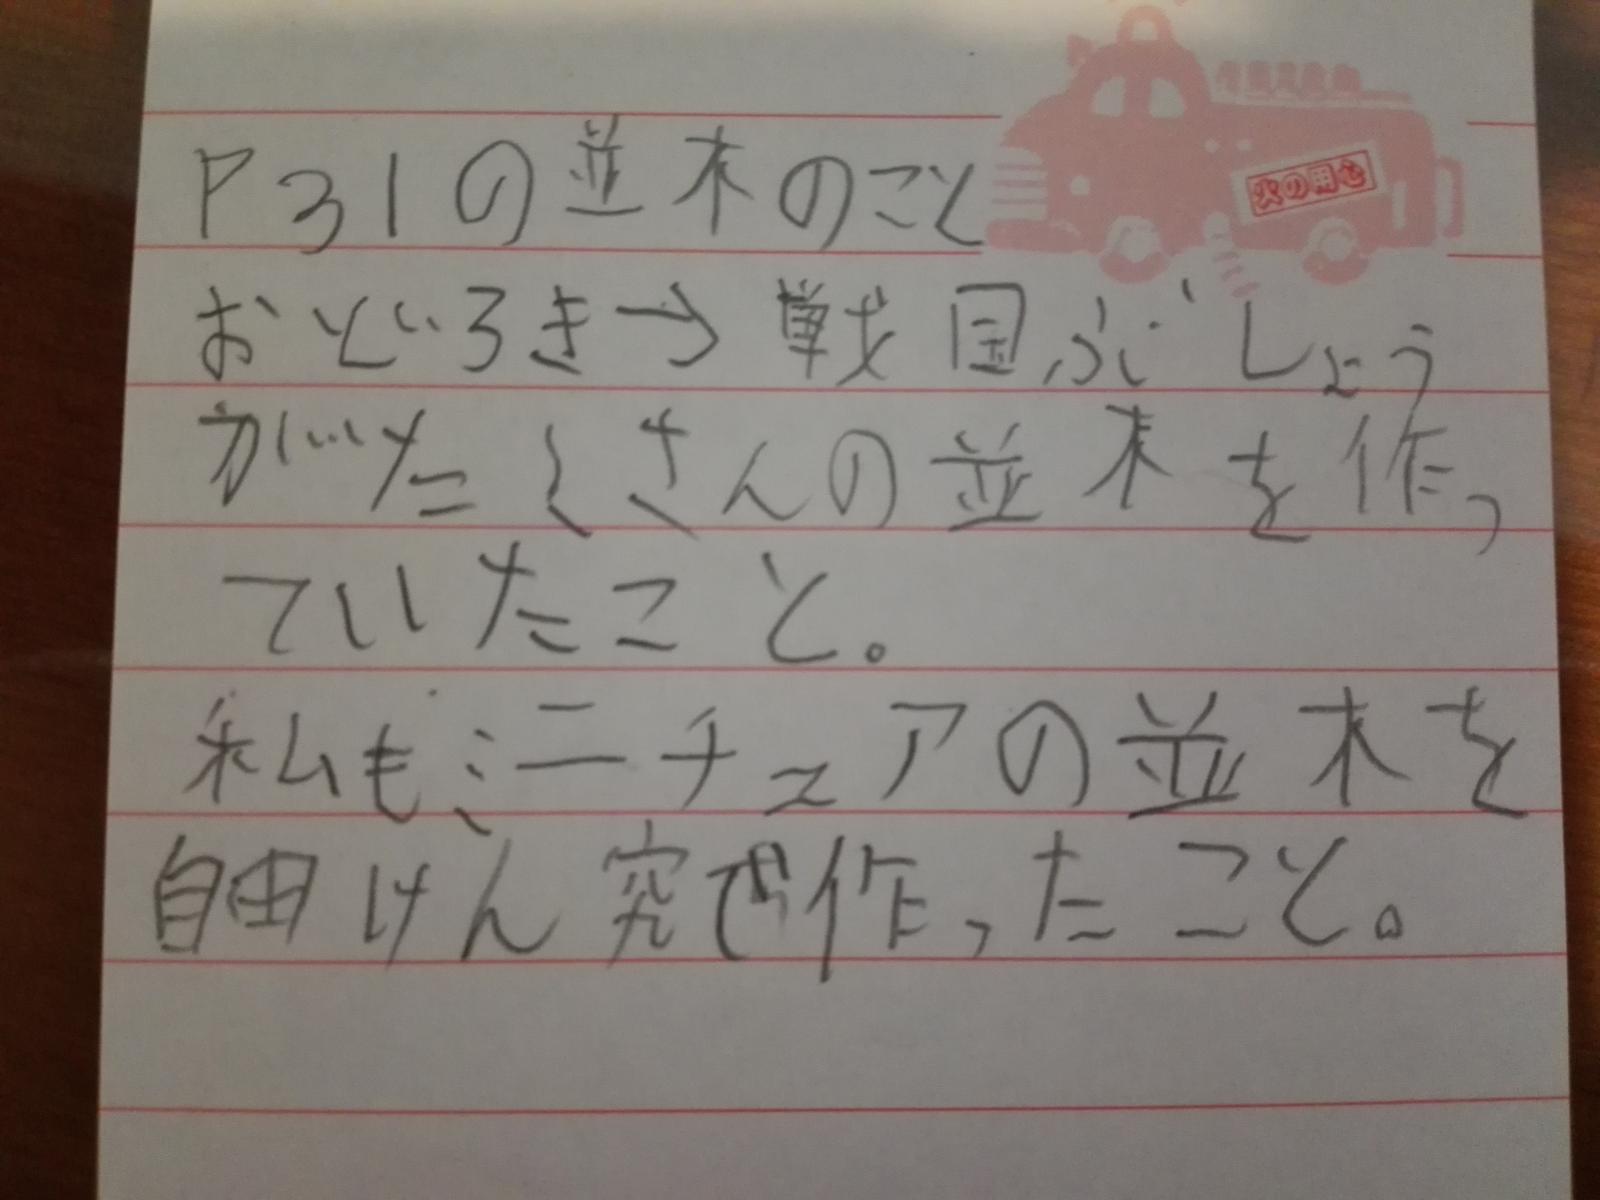 P31の並木のこと
火の用心
おどろき→戦国ぶしょう
がたくさんの並木を作っ
ていたこと。
私もミニチュアの並木を
自由けん究で作ったこと。